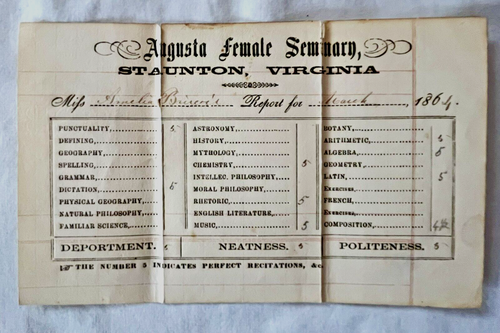 Augusta Female Seminary,
STAUNTON, VIRGINIA
Miss Amelia Report for March, 1864.
PUNCTUALITY, 5 ASTRONOMY, BOTANY,
DEFINING, HISTORY, ARITHMETIC, 5
GEOGRAPHY, MYTHOLOGY, ALGEBRA, 5
SPELLING, CHEMISTRY, 5 GEOMETRY,
GRAMMAR, INTELLEC. PHILOSOPHY, LATIN, 5
DICTATION, 5 MORAL PHILOSOPHY, Exercises,
PHYSICAL GEOGRAPHY, RHETORIC, 5 FRENCH,
NATURAL PHILOSOPHY, ENGLISH LITERATURE, Exercises,
FAMILIAR SCIENCE, MUSIC, 5 COMPOSITION,
DEPORTMENT. 5 NEATNESS. 5 POLITENESS. 5
THE NUMBER 5 INDICATES PERFECT RECITATIONS, &c.